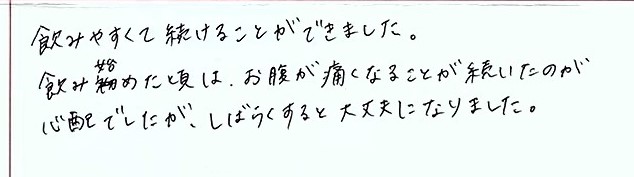 飲みやすくて続けることができました。
飲み始めた頃は、お腹が痛くなることが続いたのが
心配でしたが、しばらくすると大丈夫になりました。